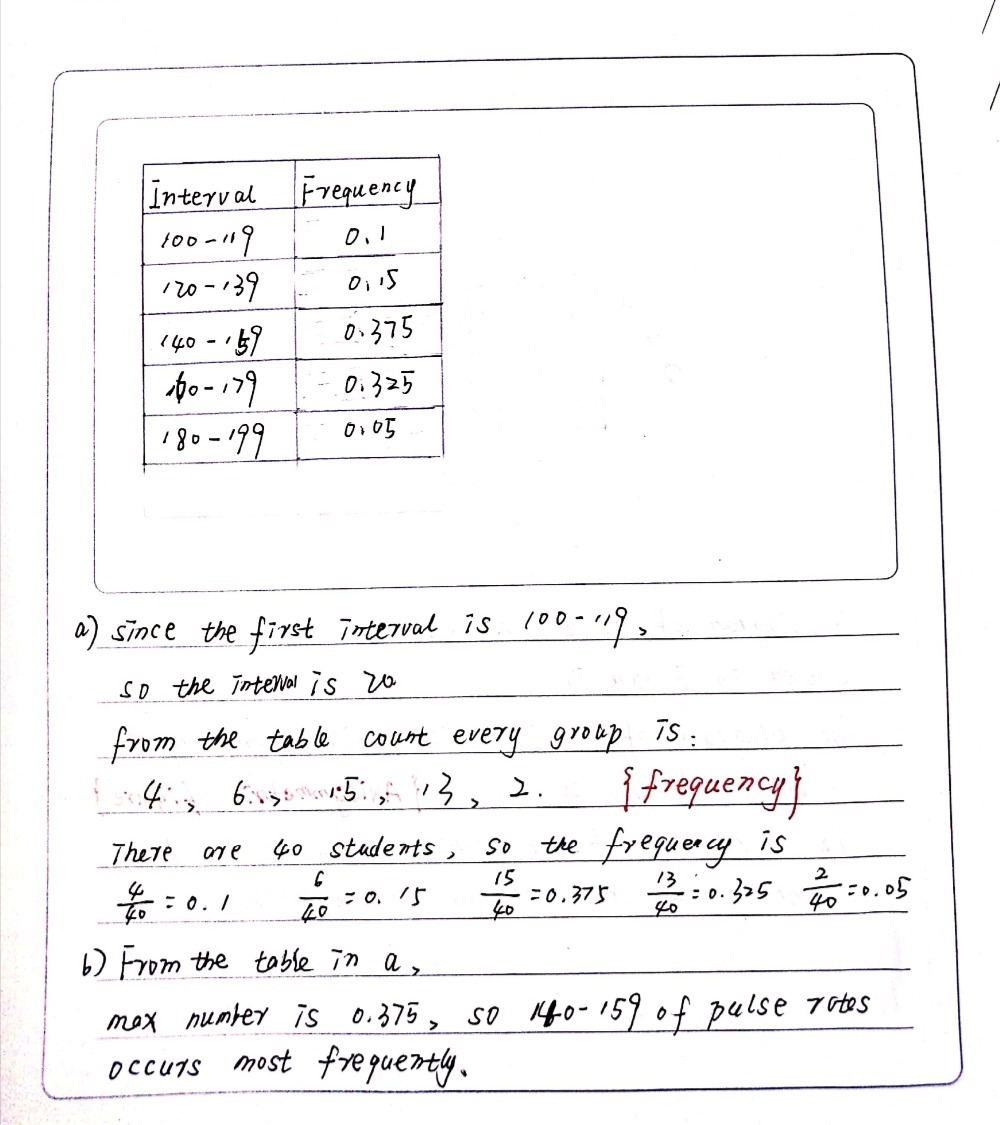 Interval Frequency
100-119 0.1
120-139 0.15
140-159 0.375
160-179 0.325
180-199 0.05
a) since the first interval is 100-119,
so the interval is 20
from the table count every group is:
4, 6, 15, 13, 2. {frequency}
There are 40 students, so the frequency is
4/40 = 0.1 6/40 = 0.15 15/40 = 0.375 13/40 = 0.325 2/40 = 0.05
b) From the table in a,
max number is 0.375, so 140-159 of pulse rates
occurs most frequently.